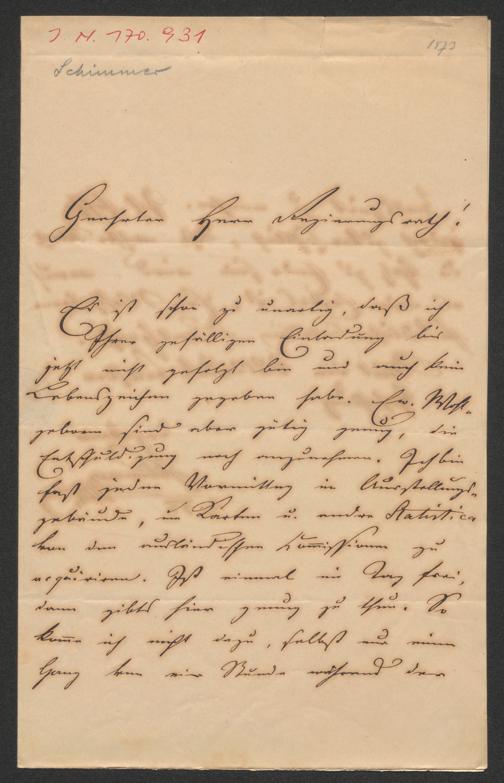 J. N. 170.931
1873
Schimmer
Geehrter Herr Regierungsrath!
Es ist schon zu unartig, daß ich
Ihrer gefälligen Einladung bis
jetzt nicht gefolgt bin und auch kein
Lebenszeichen gegeben habe. Ew. Wohl-
geboren sind aber gütig genug, die
Entschuldigung noch anzunehmen. Ich bin
fast jeden Vormittag im Ausstellungs-
gebäude, um Karten u. andre Statistica
von den ausländischen Commissionen zu
acquiriren. Ist einmal ein Tag frei,
dann gibts hier genug zu thun. So
komme ich nicht dazu, selbst nur einen
Gang von einer Stunde während der